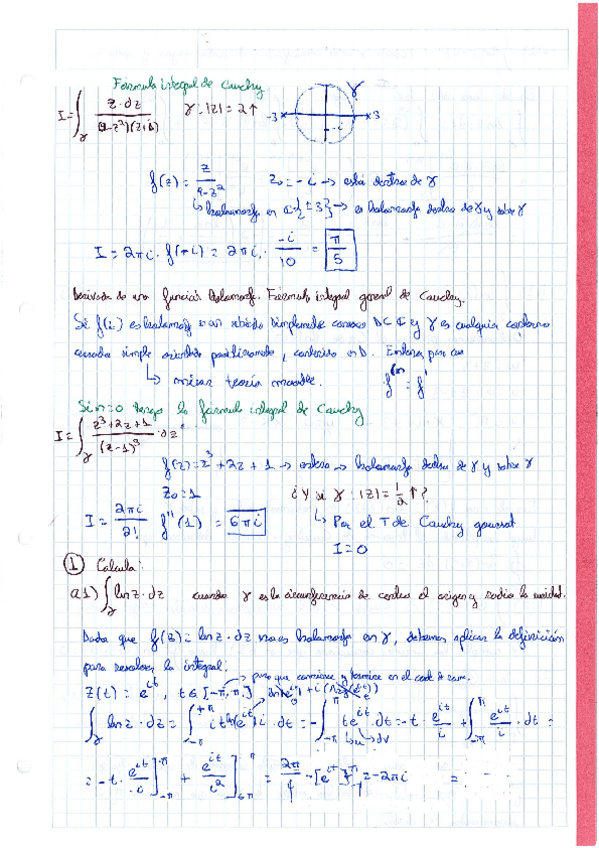 Fórmula integral de Cauchy
I = ∫γ z·dz / (9-z²)(z+i)   γ: |z| = 2 ↑   -3   3   -i   γ
f(z) = z / 9-z²   z₀ = -i → está dentro de γ
↳ holomorfa en C\{±3} → es holomorfa dentro de γ y sobre γ
I = 2πi · f(-i) = 2πi · -i/10 = π/5
Derivada de una función holomorfa. Fórmula integral general de Cauchy.
Si f(z) es holomorfa en un abierto simplemente conexo D⊂C y γ es cualquier contorno
cerrado simple orientado positivamente, contenido en D. Entonces para
↳ mirar teoría   f⁽ⁿ = f'
Si n=0 tengo la fórmula integral de Cauchy
I = ∫γ z³+2z+1 / (z-1)³ · dz
f(z) = z³ + 2z + 1 → entera → holomorfa dentro de γ y sobre γ
z₀ = 1   ¿Y si γ: |z| = 1/2 ↑?
I = 2πi/2! f''(1) = 6πi   ↳ Por el T de Cauchy general
I = 0
① Calcula:
a1) ∫γ ln z · dz   cuando γ es la circunferencia de centro el origen y radio la unidad.
Dado que f(z) = ln z · dz no es holomorfa en γ, debemos aplicar la definición
para resolver la integral:
→ para que comience y termine en el
z(t) = e^it, t ∈ [-π, π]
∫γ ln z · dz = ∫-π^+π it (e^it) i · dt = -∫-π^π t e^it · dt = -t · e^it/i + ∫-π^π e^it/i · dt =
↳u ↳dv
= -t · e^it/i ]-π^π + e^it/i² ]-π^π = 2π/i - [e^it]-π^π = -2πi =